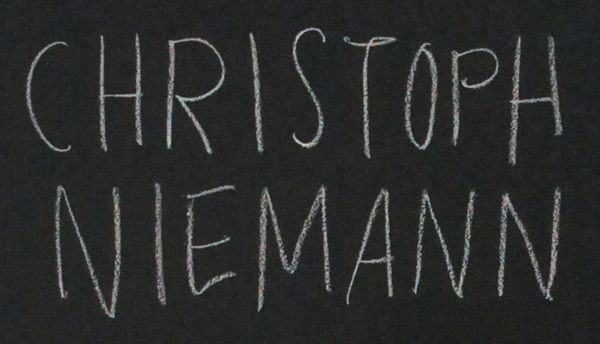 CHRISTOPH
NIEMANN